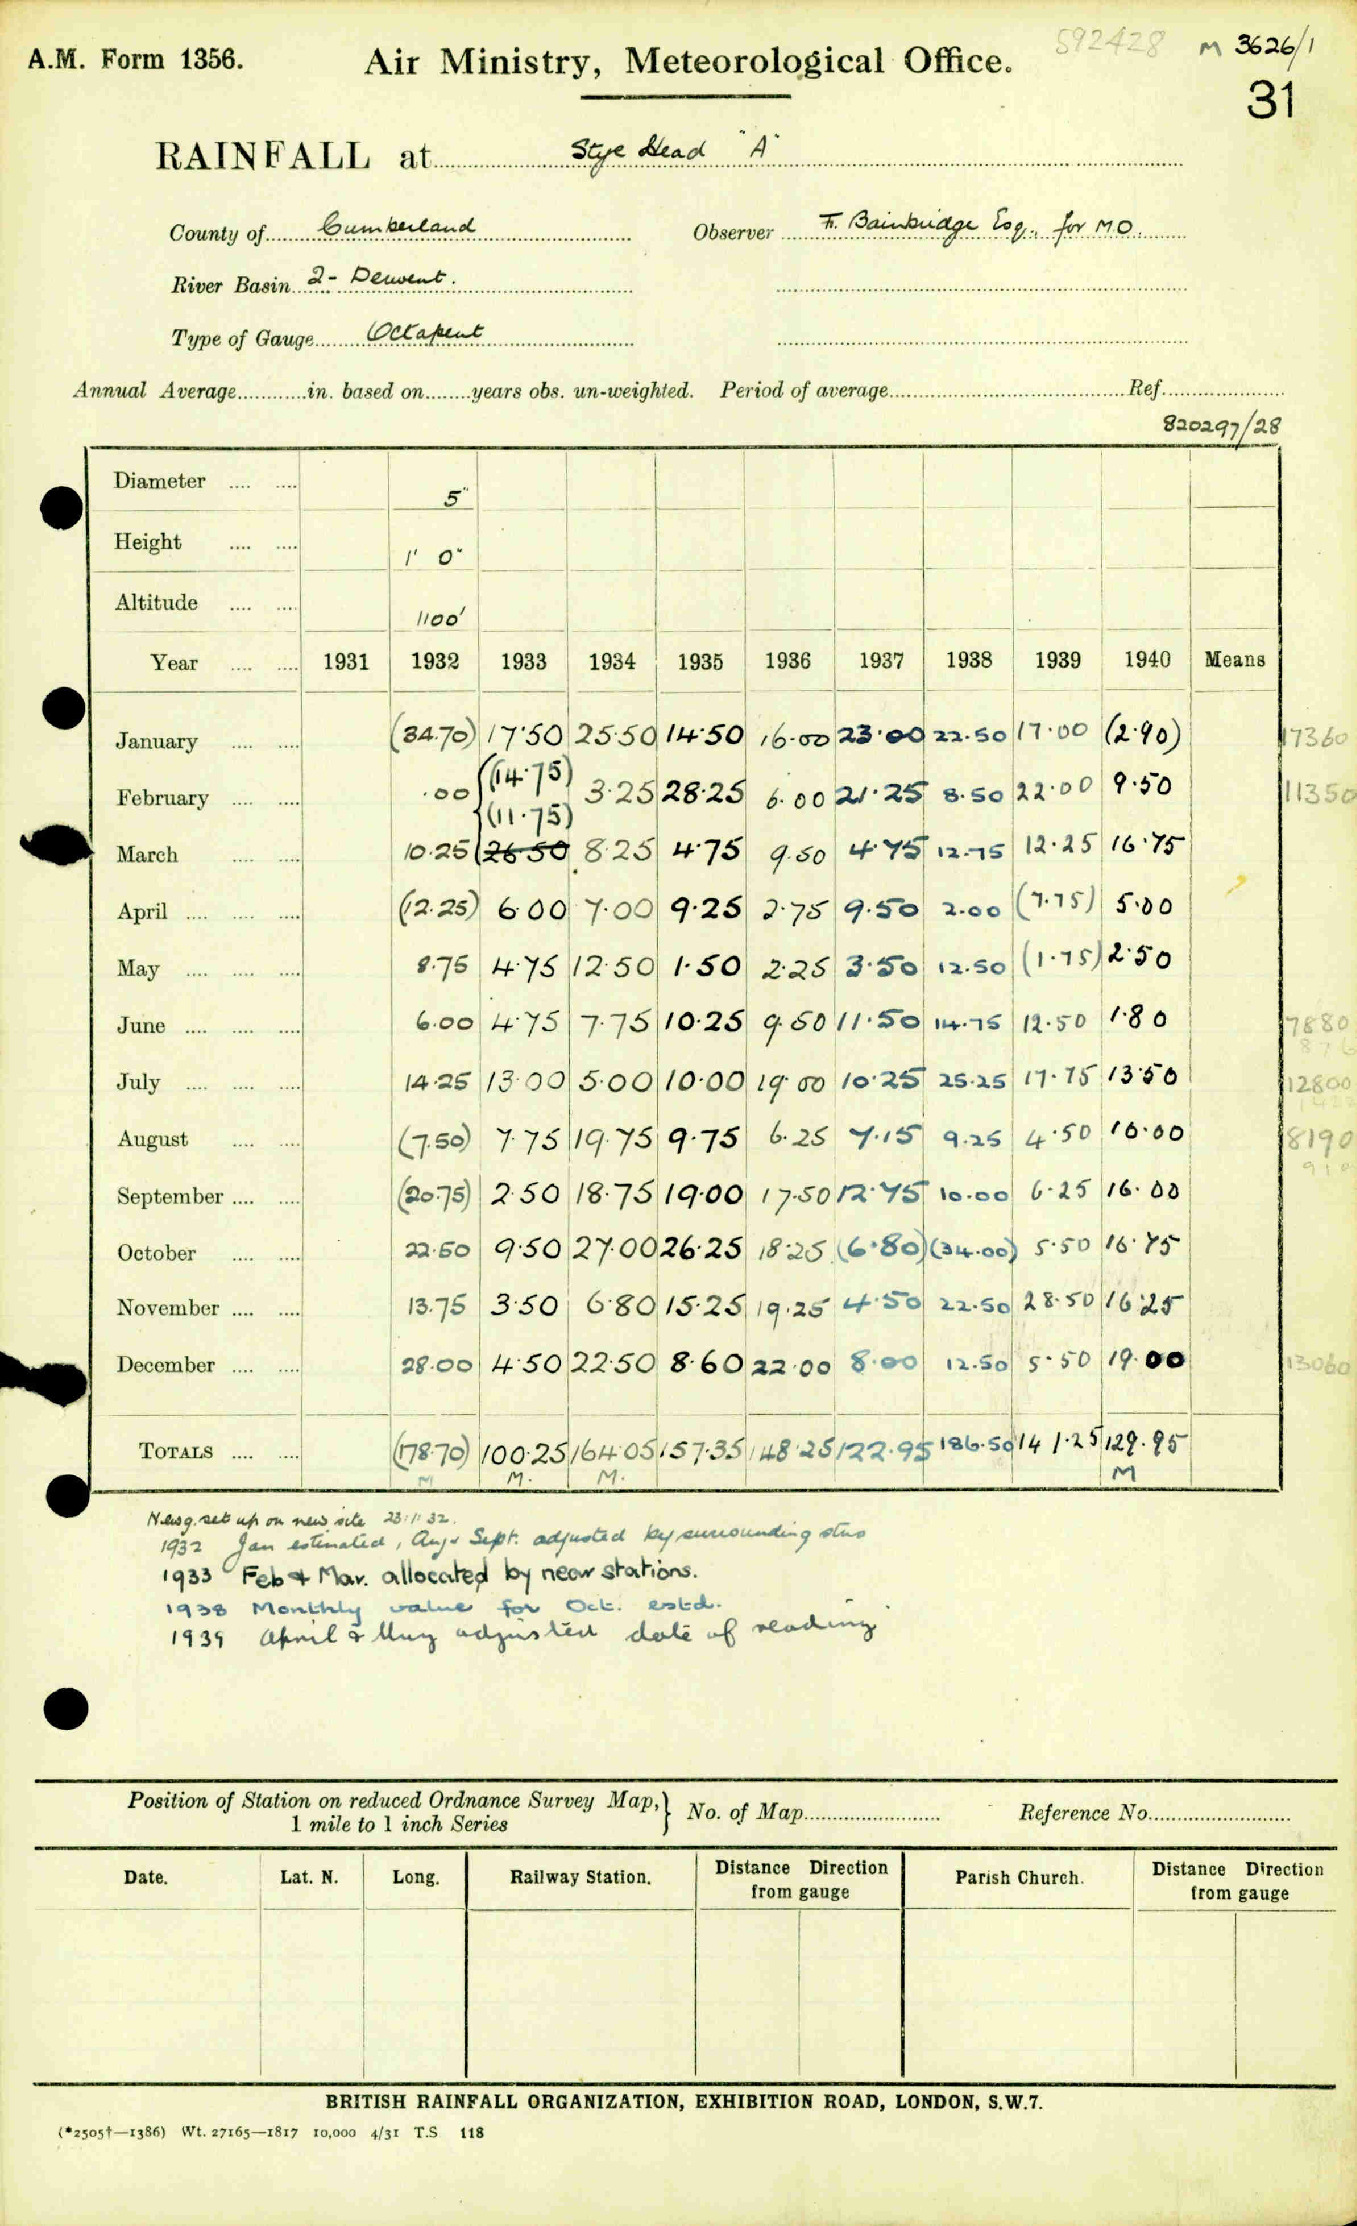 A.M. Form 1356.
Air Ministry, Meteorological Office.
592428 M 3626/1
31
RAINFALL at Stye Head "A"
County of Cumberland Observer F. Bainbridge Esq., for M.O.
River Basin 2 - Derwent.
Type of Gauge Octapent
Annual Average in. based on years obs. un-weighted. Period of average Ref.
820297/28
Diameter 5"
Height 1' 0"
Altitude 1100'
Year 1931 1932 1933 1934 1935 1936 1937 1938 1939 1940 Means
January (34.70) 17.50 25.50 14.50 16.00 23.00 22.50 17.00 (2.90) 17360
February .00 (14.75) 3.25 28.25 6.00 21.25 8.50 22.00 9.50 11350
(11.75)
March 10.25 26.50 8.25 4.75 9.50 4.75 12.75 12.25 16.75
April (12.25) 6.00 7.00 9.25 2.75 9.50 2.00 (7.75) 5.00
May 8.75 4.75 12.50 1.50 2.25 3.50 12.50 (1.75) 2.50
June 6.00 4.75 7.75 10.25 9.50 11.50 14.75 12.50 1.80 7880
876
July 14.25 13.00 5.00 10.00 19.00 10.25 25.25 17.75 13.50 12800
1422
August (7.50) 7.75 19.75 9.75 6.25 7.15 9.25 4.50 10.00 8190
910
September (20.75) 2.50 18.75 19.00 17.50 12.75 10.00 6.25 16.00
October 22.50 9.50 27.00 26.25 18.25 (6.80) (34.00) 5.50 16.75
November 13.75 3.50 6.80 15.25 19.25 4.50 22.50 28.50 16.25
December 28.00 4.50 22.50 8.60 22.00 8.00 12.50 5.50 19.00 13060
TOTALS (178.70) 100.25 164.05 157.35 148.25 122.95 186.50 141.25 129.95
M M. M. M
New g. set up on new site 23.11.32.
1932 Jan estimated, Aug & Sept. adjusted by surrounding stns
1933 Feb & Mar. allocated by near stations.
1938 Monthly value for Oct. estd.
1939 April & May adjusted date of reading
Position of Station on reduced Ordnance Survey Map,
1 mile to 1 inch Series } No. of Map Reference No.
Date. Lat. N. Long. Railway Station. Distance Direction from gauge Parish Church. Distance Direction from gauge
BRITISH RAINFALL ORGANIZATION, EXHIBITION ROAD, LONDON, S.W.7.
(*2505†—1386) Wt. 27165—1817 10,000 4/31 T.S 118